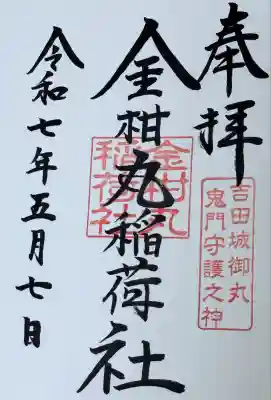 奉拝
吉田城御丸
鬼門守護之神
金柑丸稲荷社
金柑丸
稲荷社
令和七年五月七日